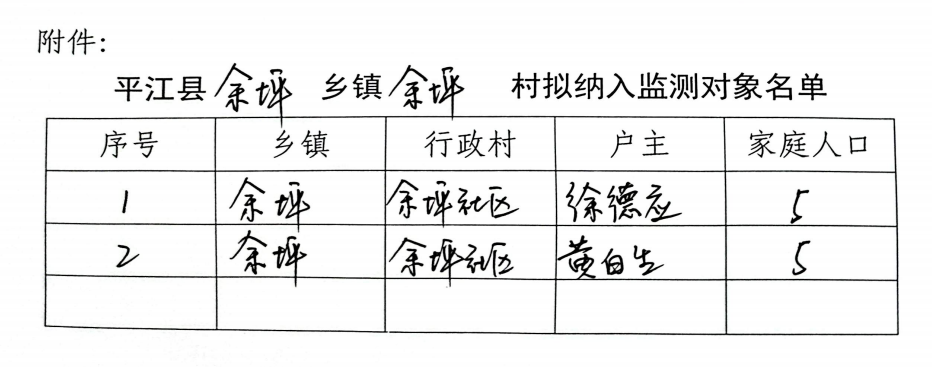 附件：
平江县余坪乡镇余坪村拟纳入监测对象名单
序号 乡镇 行政村 户主 家庭人口
1 余坪 余坪社区 徐德应 5
2 余坪 余坪社区 黄自生 5